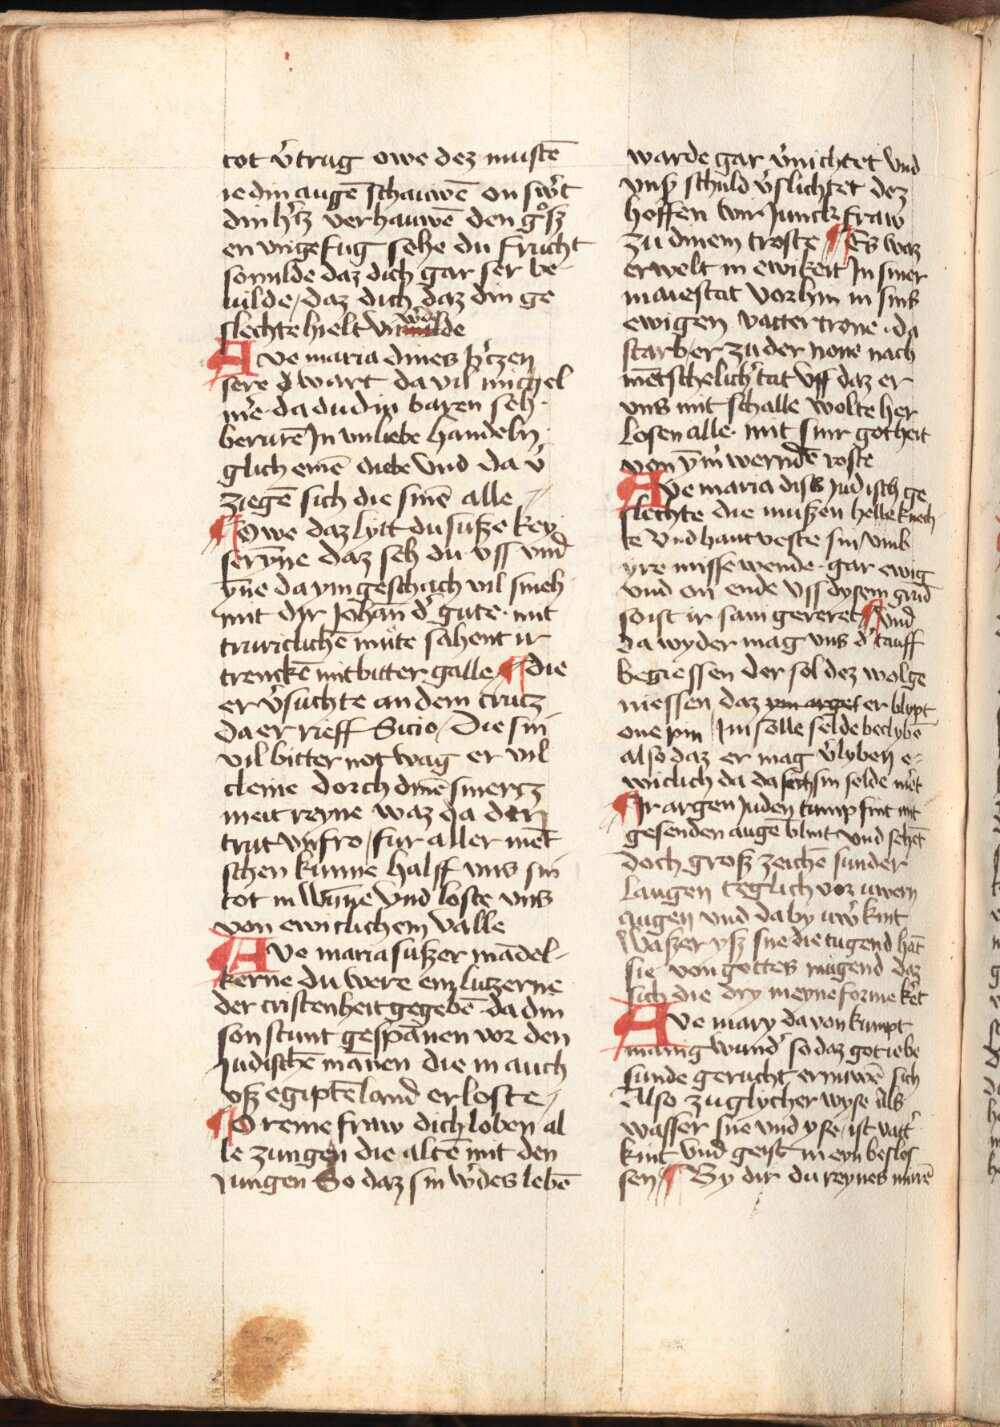 tot v̓trug owe dez mustē
ie din augē schauwē on sw̓t
din h̓tz verhauwē den gͦsz
en vngefug sehe du frucht
so milde daz dich gar ser be
uilde / daz dich daz din ge
slechte hielt vn wilde
Ave maria dines h̓czen
sere d̓ wart da vil michel
me̓ · da du din baren seh ·
berurē In vnliebe handeln
glich einē diebe vnd da v̓
ziegē sich die sinē alle
¶ Owe daz lytt du susze key
serȳne daz seh du vss vnd
yn̄e da ym geschach vil smeh
mit dir Johān d̓ gute · mit
truriclichē mute sahent ir
trenckē mit bitter galle ¶ die
er v̓suchte an dem crutz
da er rieff Sicio / Die sin
vil bitter not wag er vil
cleine dorch dine smertz
meit reyne waz da der
trut vnfro / fur aller mēt
schen kunne halff vns sin
tot in wūne vnd loste vns
von ewiclichem valle
Ave maria suszer mādel-
kerne du were ein lutzerne
der cristenheit gegebē · da din
son stunt gespānen vor den
Judischē mānen die in auch
vsz egiptē land erloste /
¶ O reine fraw dich loben al
le zungen die altē mit den
Jungen So daz sin w̓des lebē
warde gar v̓nichtet vnd
vnsz schuld v̓slichtet dez
hoffen wir Junckfraw
zu dinem troste ¶ Es waz
erwelt in ewikeit In siner
maiestat vorhin in sins
ewigen vatter trone · da
starb er zu der none nach
mētschelich̓ tat vff daz er
vns mit schalle wolte her
losen alle · mit sinr gotheit
von ȳm̓ wernden̄ roste
Ave maria diss Judisch ge
slechte die muszen helle knech
te vnd hantveste sin vmb
yre missewende · gar ewig
vnd on ende vss dysem grūd
so ist ir sam gereret ¶ vnd
da wyder mag vns d̓ tauff
begiessen der sol dez wolge
niessen daz er blypt
one pin / Im solle selde beclybē
also daz er mag v̓lyben e-
wiclich da da sich sin selde me̓t
¶ Ir argen Juden tump sint mit
gesenden augē blint vnd sehēt
doch grosz zeichē sunder
laugen teglich vor uwern
augen vnd da by uw̓ kint
waszer ysz sne die tugend hāt
sie von gottes mugend daz
sich die dry in eyne forme ke̓t
Ave mary da von kumpt
manig wund̓ so daz got iebe
sunde gerucht ernuwē sich
Also zu glycher wyse als
wasser sne vnd yse / ist vatt̓
kint vnd geist in eyn beslos
sen ¶ By dir du reynes mirrē